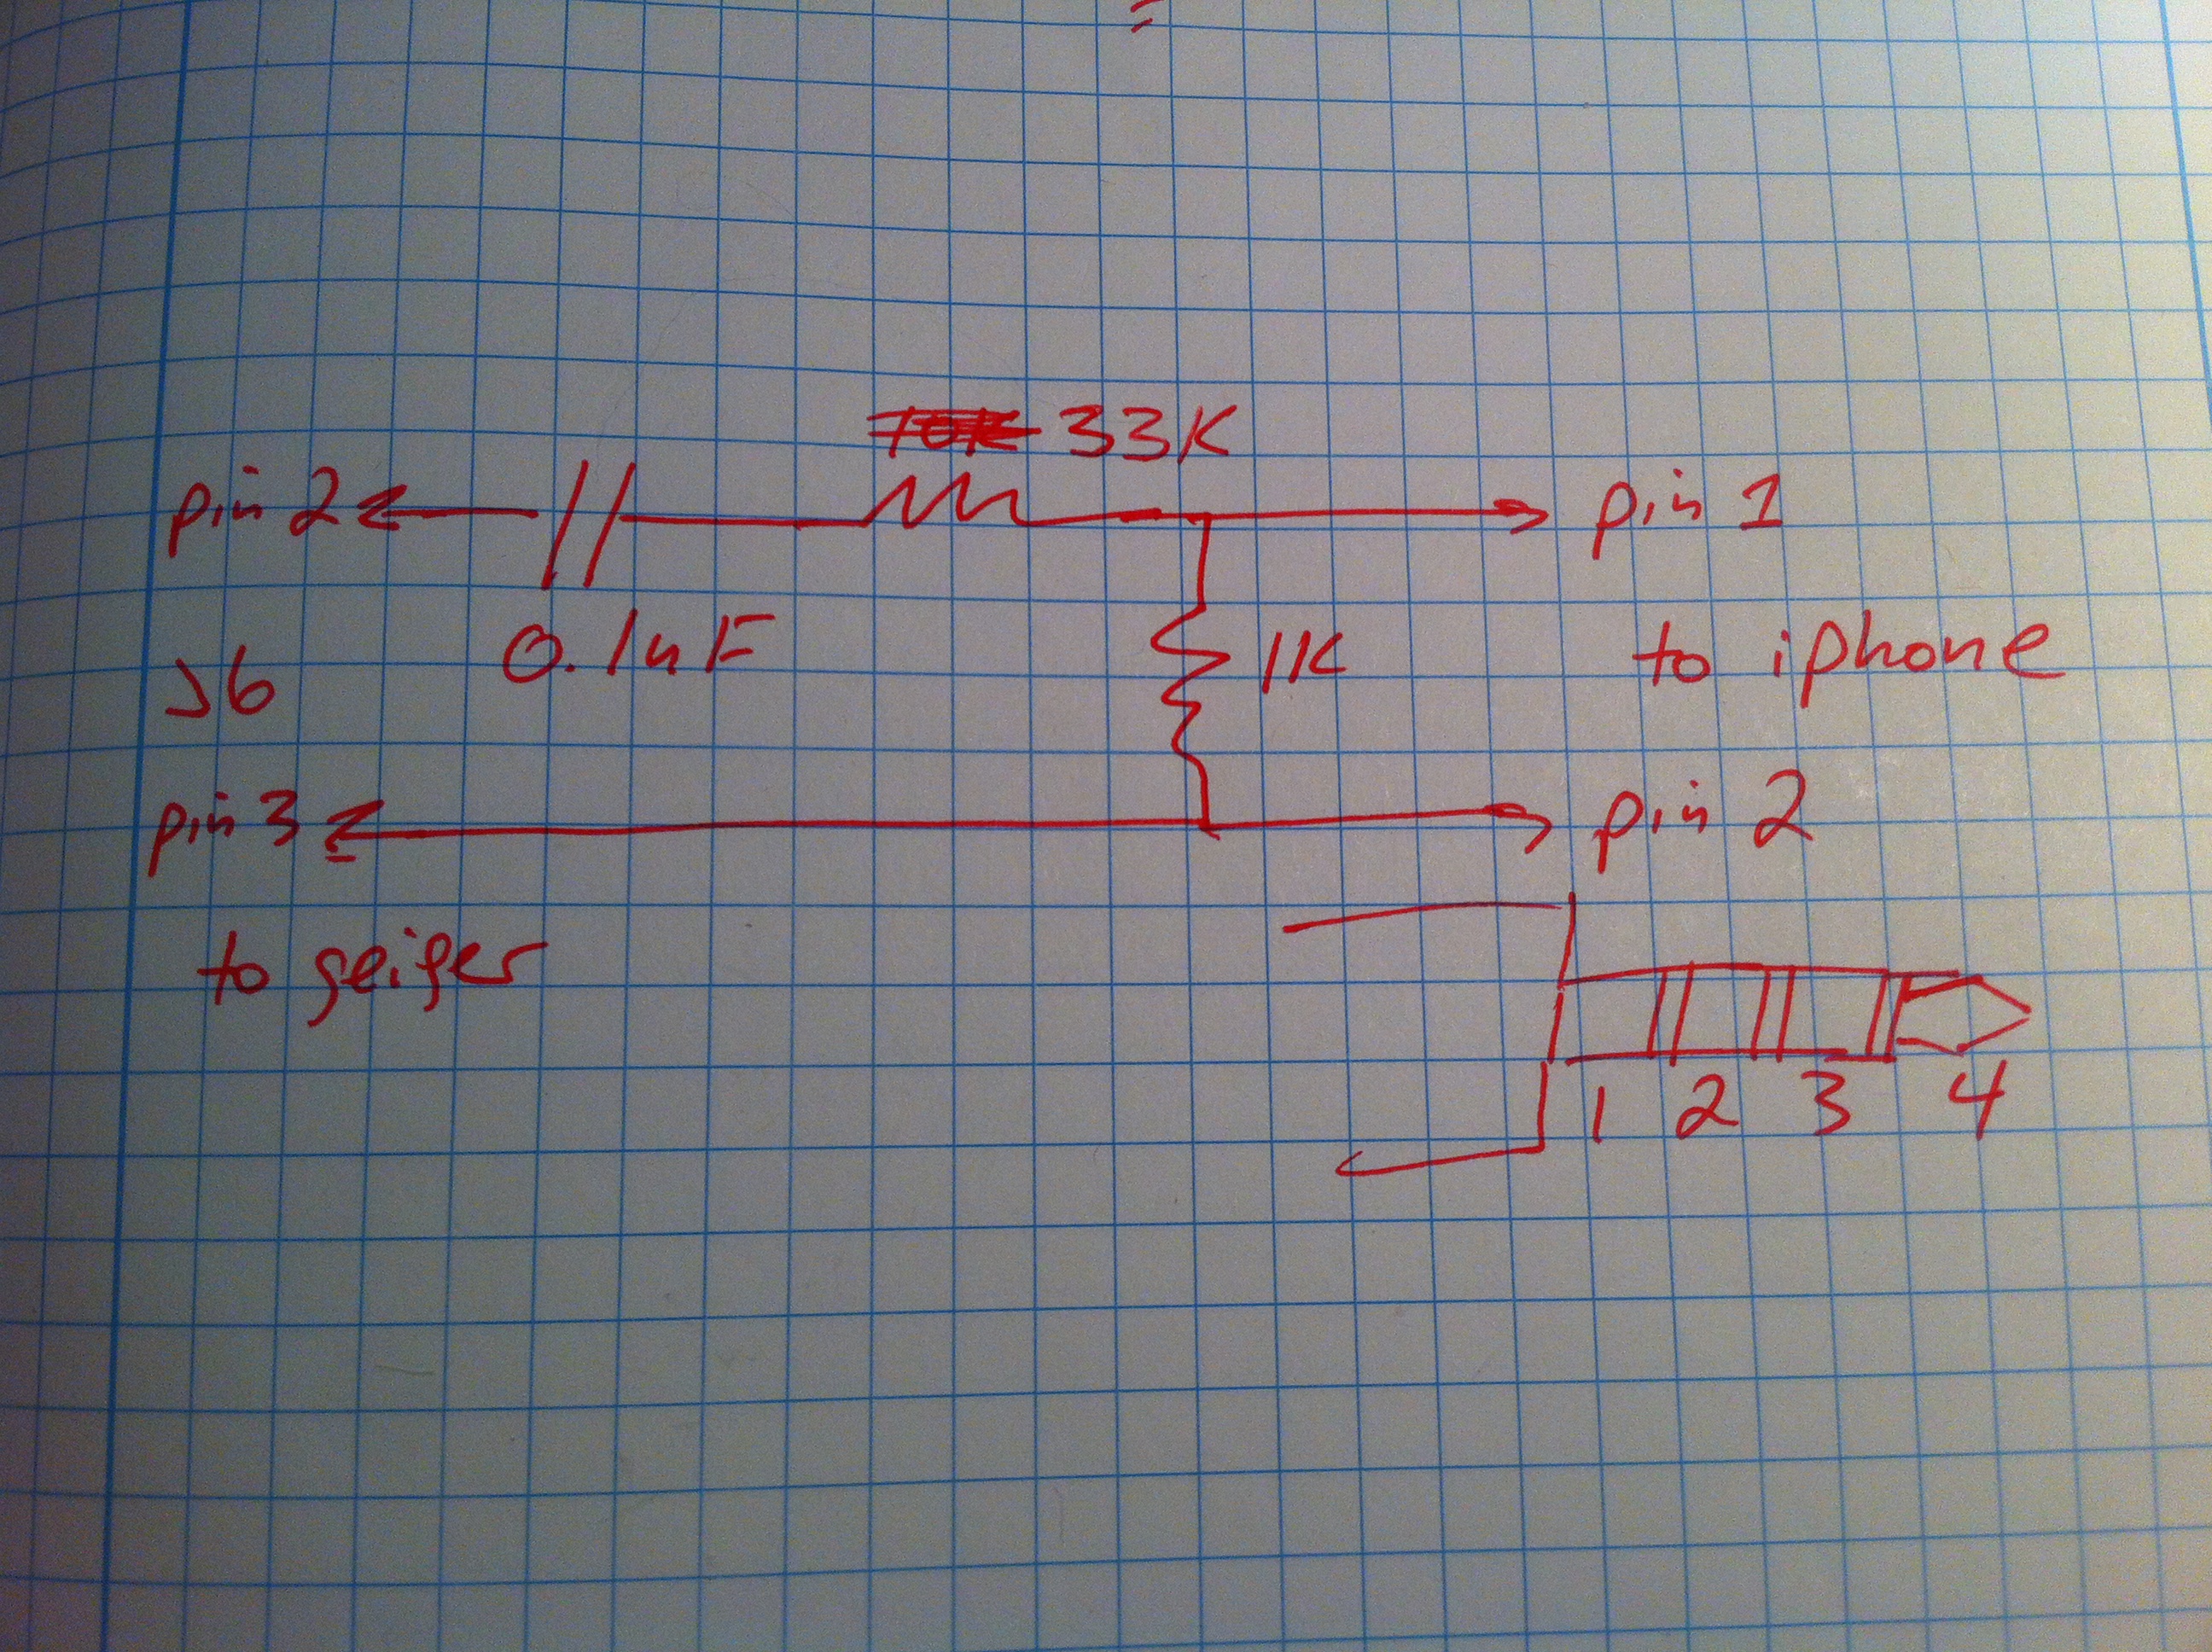 33K
pin 2
pin 1
0.1uF
1K
to iphone
J6
pin 3
pin 2
to geiger
1 2 3 4